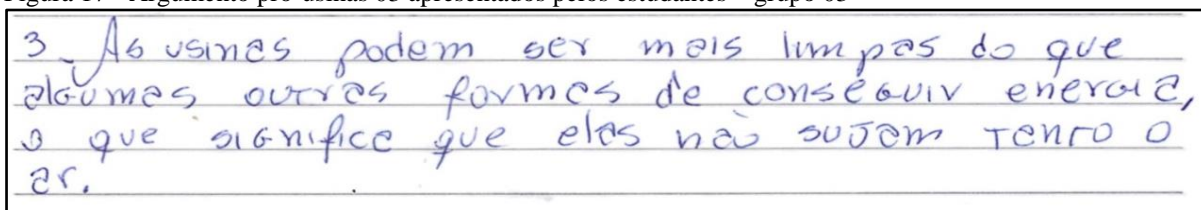 Figura 17 – Argumento pró-usinas 03 apresentados pelos estudantes – grupo 03
3_ As usinas podem ser mais limpas do que
algumas outras formas de conseguir energia,
o que significa que elas não sujam tanto o
ar.